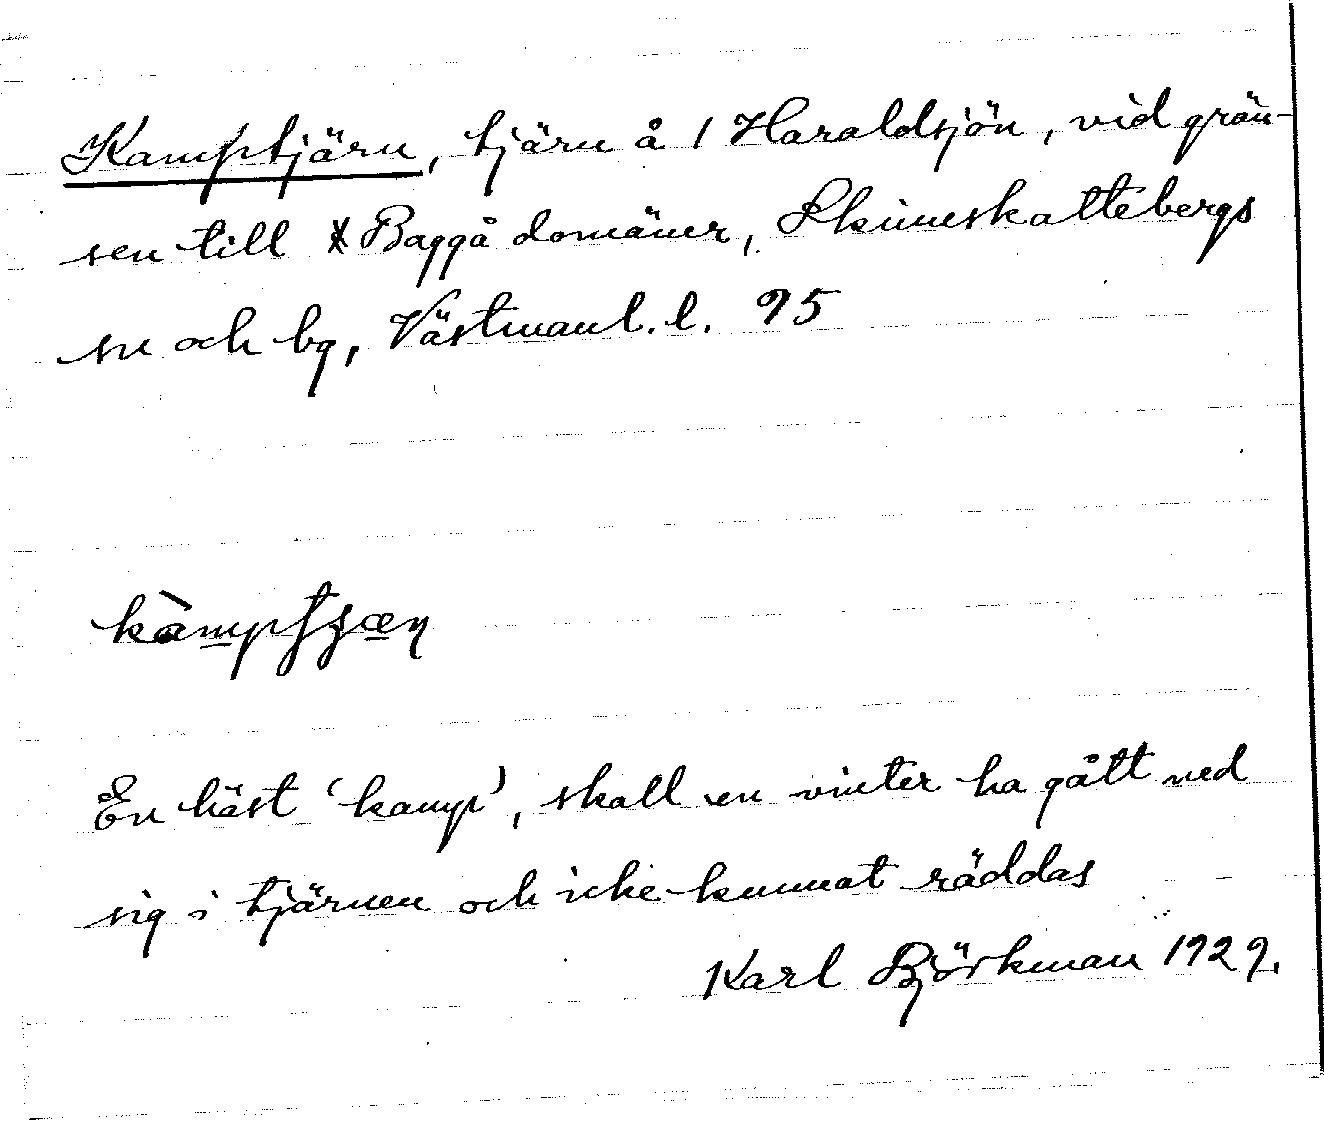 Kamptjärn, tjärn å 1 Haraldsjön, vid grän-
sen till * Baggå domäner, Skinnskattebergs
sn och bg, Västmanl. l. 95
En häst 'kamp', skall en vinter ha gått ned
sig i tjärnen och icke kunnat räddas
Karl Björkman 1929.